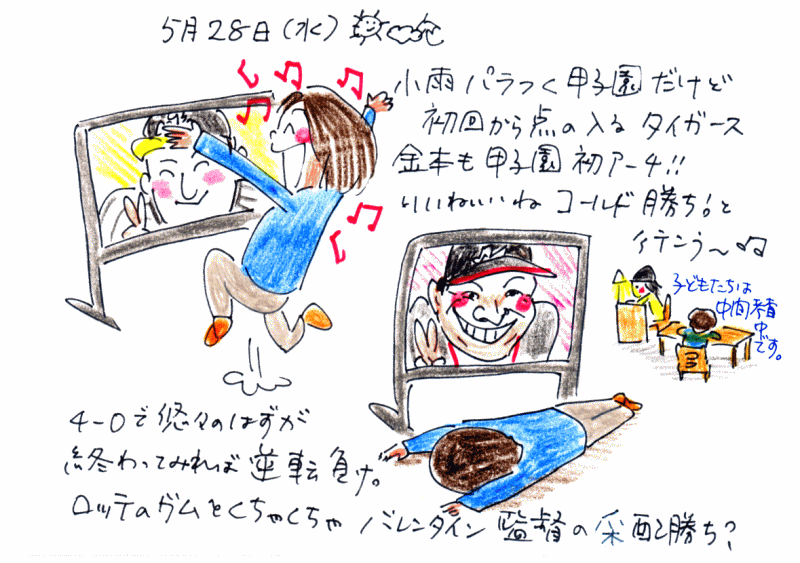 5月28日(水)
小雨パラつく甲子園だけど
初回から点の入るタイガース
金本も甲子園初アーチ!!
いいねいいねコールド勝ち!と
イテンう〜
子どもたちは
中間考査
中です。
4-0で悠々のはずが
終わってみれば逆転負け。
ロッテのガムをくちゃくちゃ バレンタイン監督の采配勝ち?